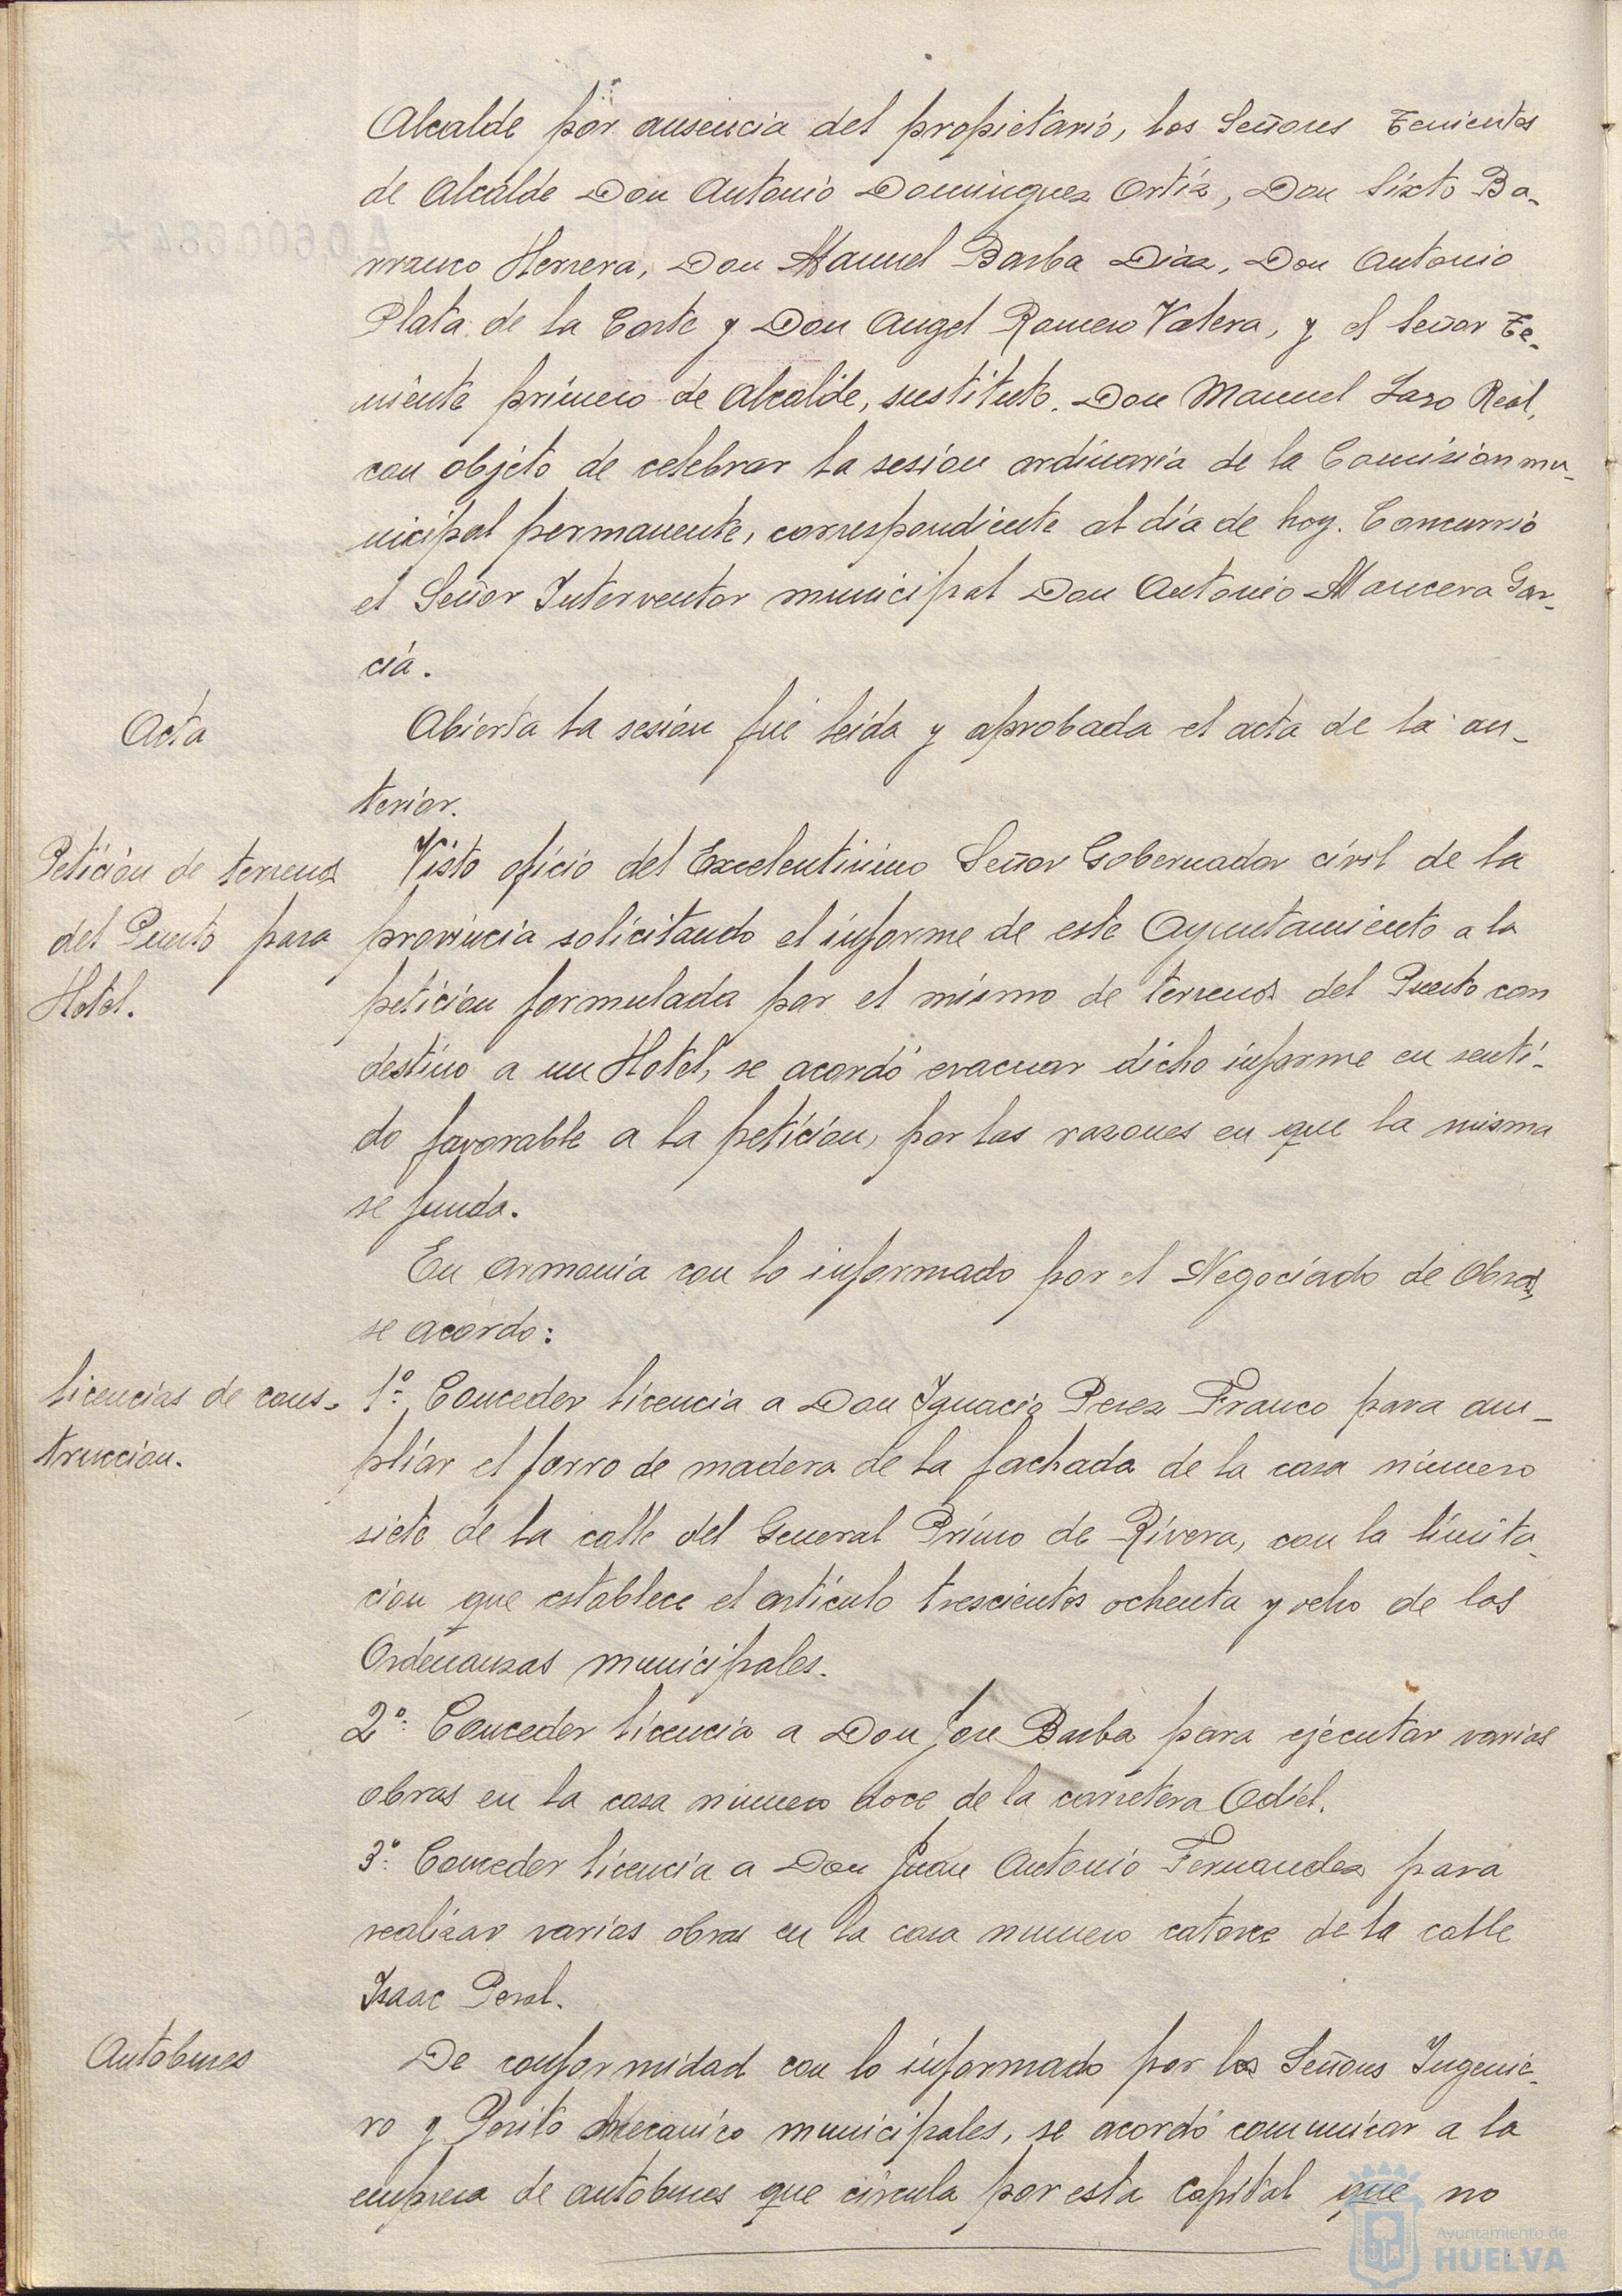 Alcalde por ausencia del propietario, los Señores Tenientes
de Alcalde Don Antonio Dominguez Ortiz, Don Sixto Ba-
rranco Herrera, Don Manuel Barba Diaz, Don Antonio
Plata de la Corte y Don Angel Romero Valera, y el Señor Te-
niente primero de Alcalde, sustituto, Don Manuel Lazo Real,
con objeto de celebrar la sesion ordinaria de la Comision mu-
nicipal permanente, correspondiente al día de hoy. Concurrió
el Señor Interventor municipal Don Antonio Mancera Gar-
cia.
Acta
Abierta la sesión fué leida y aprobada el acta de la an-
terior.
Petición de terrenos
del Puerto para
Hotel.
Visto oficio del Excelentisimo Señor Gobernador civil de la
provincia solicitando el informe de este Ayuntamiento a la
petición formulada por el mismo de terrenos del Puerto con
destino a un Hotel, se acordó evacuar dicho informe en senti-
do favorable a la petición, por las razones en que la misma
se funda.
En armonia con lo informado por el Negociado de Obras,
se acordo:
Licencias de cons-
truccion.
1º- Conceder licencia a Don Ignacio Perez Franco para am-
pliar el forro de madera de la fachada de la casa número
siete de la calle del General Primo de Rivera, con la limita-
cion que establece el articulo trescientos ochenta y ocho de las
Ordenanzas municipales.
2º- Conceder licencia a Don Jose Barba para ejecutar varias
obras en la casa número doce de la carretera Odiel.
3º- Conceder licencia a Don Juan Antonio Fernandez para
realizar varias obras en la casa numero catorce de la calle
Isaac Peral.
Autobuses
De conformidad con lo informado por los Señores Ingenie-
ro y Perito Mecanico municipales, se acordó comunicar a la
empresa de autobuses que circula por esta capital que no
Ayuntamiento de
HUELVA